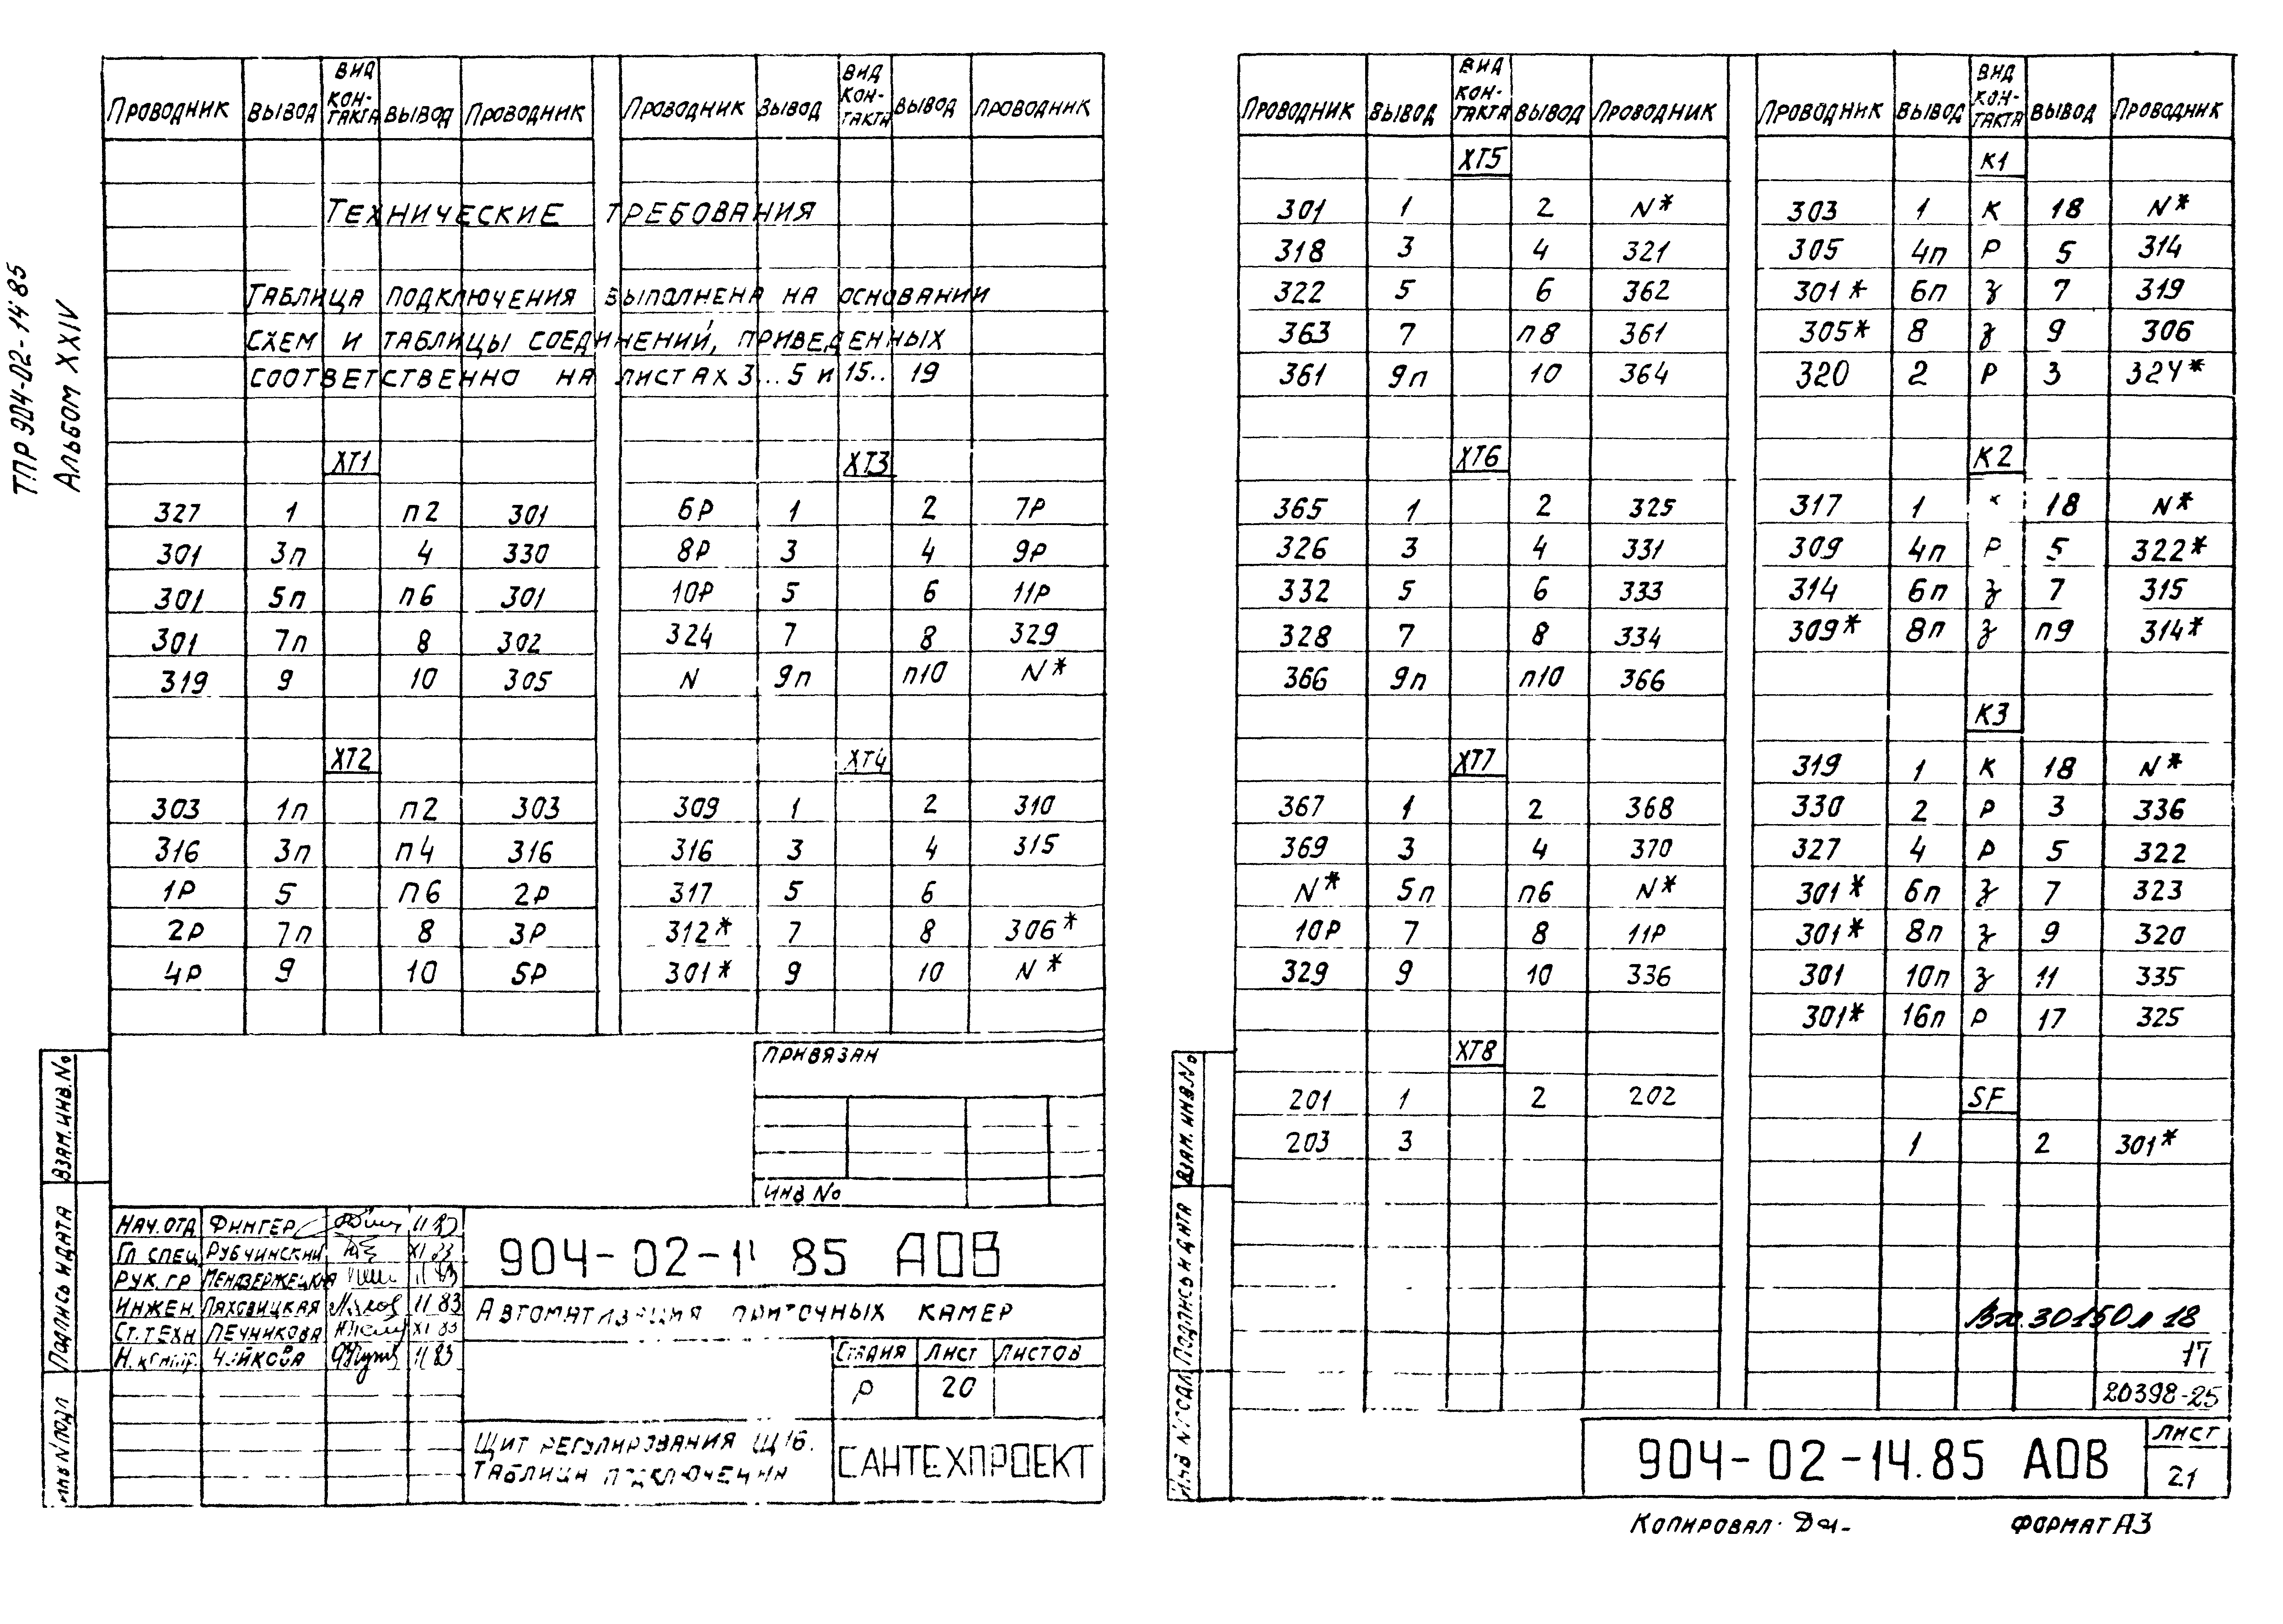 ТПР 904-02-14.85
Альбом XXIV
Проводник Вывод Вид кон-такта Вывод Проводник Проводник Вывод Вид кон-такта Вывод Проводник
Технические требования
Таблица подключения выполнена на основании
схем и таблицы соединений, приведенных
соответственно на листах 3...5 и 15.. 19
ХТ1
327 1 п2 301
301 3п 4 330
301 5п п6 301
301 7п 8 302
319 9 10 305
ХТ2
303 1п п2 303
316 3п п4 316
1Р 5 п6 2Р
2Р 7п 8 3Р
4Р 9 10 5Р
ХТ3
6Р 1 2 7Р
8Р 3 4 9Р
10Р 5 6 11Р
324 7 8 329
N 9п п10 N*
ХТ4
309 1 2 310
316 3 4 315
317 5 6
312* 7 8 306*
301* 9 10 N*
Привязан
Инв №
Взам. инв. №
Подпись и дата
Инв № подл
Нач. отд Фингер 11 83
Гл спец Рубчинский XI 83
Рук. гр Мендзержецкая 11 83
Инжен. Ляховицкая 11 83
Ст. техн Печникова XI 83
Н. контр. Чуйкова 11 83
904-02-1 85 АОВ
Автоматизация приточных камер
Стадия Лист Листов
Р 20
Щит регулирования Щ16.
Таблица подключения
САНТЕХПРОЕКТ
Проводник Вывод Вид кон-такта Вывод Проводник Проводник Вывод Вид кон-такта Вывод Проводник
ХТ5
301 1 2 N*
318 3 4 321
322 5 6 362
363 7 п8 361
361 9п 10 364
ХТ6
365 1 2 325
326 3 4 331
332 5 6 333
328 7 8 334
366 9п п10 366
ХТ7
367 1 2 368
369 3 4 370
N* 5п п6 N*
10Р 7 8 11Р
329 9 10 336
ХТ8
201 1 2 202
203 3
К1
303 1 К 18 N*
305 4п Р 5 314
301* 6п З 7 319
305* 8 З 9 306
320 2 Р 3 324*
К2
317 1 18 N*
309 4п Р 5 322*
314 6п З 7 315
309* 8п З п9 314*
К3
319 1 К 18 N*
330 2 Р 3 336
327 4 Р 5 322
301* 6п З 7 323
301* 8п З 9 320
301 10п З 11 335
301* 16п Р 17 325
SF
1 2 301*
Вх. 30150 л 18
17
20398-25
Взам. инв. №
Подпись и дата
Инв № подл
904-02-14.85 АОВ
Лист
21
Копировал
Формат А3